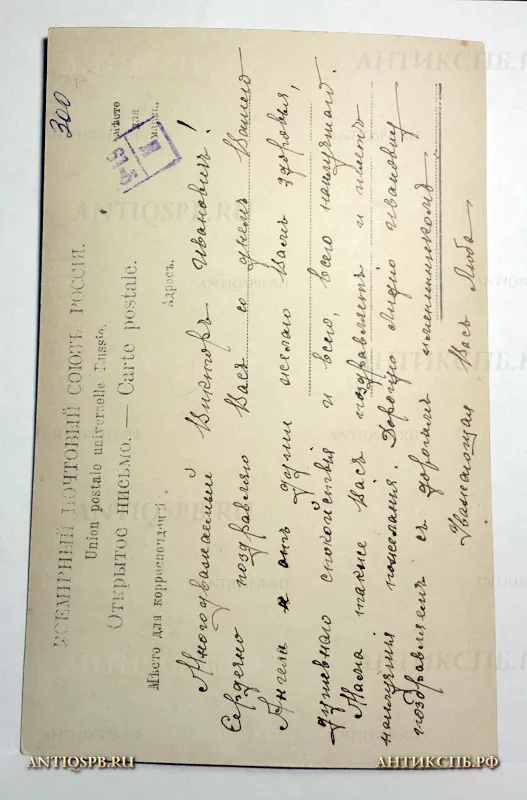 300
ВСЕМІРНЫЙ ПОЧТОВЫЙ СОЮЗЪ. РОССІЯ.
Union postale universelle Russie.
ОТКРЫТОЕ ПИСЬМО. — Carte postale.
Мѣсто для корреспонденціи
Адресъ.
мѣсто
для
марки.
Многоуважаемый Викторъ Ивановичъ!
Сердечно поздравляю Васъ со днемъ Вашего
Ангела и отъ души желаю Вамъ здоровья,
душевнаго спокойствія и всего, всего наилучшаго.
Мама также Васъ поздравляетъ и шлетъ
наилучшія пожеланія. Дорогую Лидію Ивановну
поздравляемъ съ дорогимъ имянинникомъ.
Уважающая Васъ Люба
ANTIQSPB.RU
АНТИКСПБ.РФ